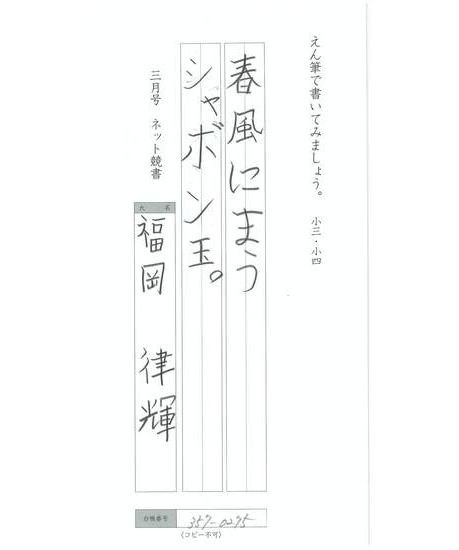 えん筆で書いてみましょう。 小三・小四
春風にまう
シャボン玉。
三月号 ネット競書
氏名
福岡 律輝
会員番号 357-0275
(コピー不可)